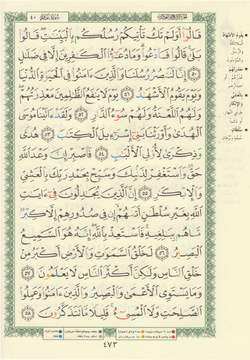 قَالُوٓا۟ أَوَلَمْ تَكُ تَأْتِيكُمْ رُسُلُكُم بِٱلْبَيِّنَٰتِ ۖ قَالُوا۟
بَلَىٰ ۚ قَالُوا۟ فَٱدْعُوا۟ ۗ وَمَا دُعَٰٓؤُا۟ ٱلْكَٰفِرِينَ إِلَّا فِى ضَلَٰلٍ
﴿٥٠﴾ إِنَّا لَنَنصُرُ رُسُلَنَا وَٱلَّذِينَ ءَامَنُوا۟ فِى ٱلْحَيَوٰةِ ٱلدُّنْيَا
وَيَوْمَ يَقُومُ ٱلْأَشْهَٰدُ ﴿٥١﴾ يَوْمَ لَا يَنفَعُ ٱلظَّٰلِمِينَ مَعْذِرَتُهُمْ ۖ
وَلَهُمُ ٱللَّعْنَةُ وَلَهُمْ سُوٓءُ ٱلدَّارِ ﴿٥٢﴾ وَلَقَدْ ءَاتَيْنَا مُوسَى
ٱلْهُدَىٰ وَأَوْرَثْنَا بَنِىٓ إِسْرَٰٓءِيلَ ٱلْكِتَٰبَ ﴿٥٣﴾ هُدًى
وَذِكْرَىٰ لِأُو۟لِى ٱلْأَلْبَٰبِ ﴿٥٤﴾ فَٱصْبِرْ إِنَّ وَعْدَ ٱللَّهِ
حَقٌّ وَٱسْتَغْفِرْ لِذَنۢبِكَ وَسَبِّحْ بِحَمْدِ رَبِّكَ بِٱلْعَشِىِّ
وَٱلْإِبْكَٰرِ ﴿٥٥﴾ إِنَّ ٱلَّذِينَ يُجَٰدِلُونَ فِىٓ ءَايَٰتِ
ٱللَّهِ بِغَيْرِ سُلْطَٰنٍ أَتَىٰهُمْ ۙ إِن فِى صُدُورِهِمْ إِلَّا كِبْرٌ
مَّا هُم بِبَٰلِغِيهِ ۚ فَٱسْتَعِذْ بِٱللَّهِ ۖ إِنَّهُۥ هُوَ ٱلسَّمِيعُ
ٱلْبَصِيرُ ﴿٥٦﴾ لَخَلْقُ ٱلسَّمَٰوَٰتِ وَٱلْأَرْضِ أَكْبَرُ مِنْ
خَلْقِ ٱلنَّاسِ وَلَٰكِنَّ أَكْثَرَ ٱلنَّاسِ لَا يَعْلَمُونَ ﴿٥٧﴾
وَمَا يَسْتَوِى ٱلْأَعْمَىٰ وَٱلْبَصِيرُ وَٱلَّذِينَ ءَامَنُوا۟ وَعَمِلُوا۟
ٱلصَّٰلِحَٰتِ وَلَا ٱلْمُسِىٓءُ ۚ قَلِيلًا مَّا تَتَذَكَّرُونَ ﴿٥٨﴾
٤٧٣